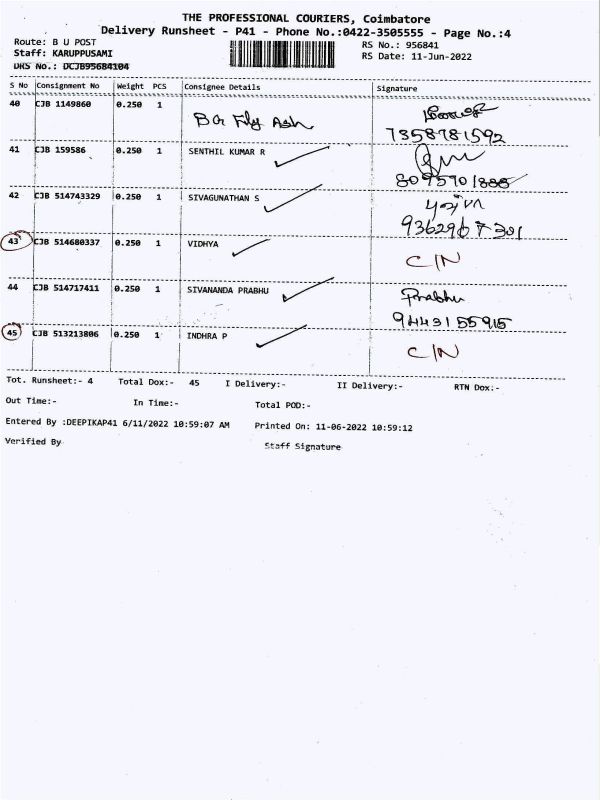 THE PROFESSIONAL COURIERS, Coimbatore
Delivery Runsheet - P41 - Phone No.:0422-3505555 - Page No.:4
Route: B U POST
RS No.: 956841
Staff: KARUPPUSAMI
RS Date: 11-Jun-2022
DRS No.: DCJB95684104
S No Consignment No Weight PCS Consignee Details Signature
40 CJB 1149860 0.250 1 Fly Ash
7358781592
41 CJB 159586 0.250 1 SENTHIL KUMAR R
8095901888
42 CJB 514743329 0.250 1 SIVAGUNATHAN S
9362967301
43 CJB 514680337 0.250 1 VIDHYA C/N
44 CJB 514717411 0.250 1 SIVANANDA PRABHU Prabhu
9443155915
45 CJB 513213806 0.250 1 INDHRA P C/N
Tot. Runsheet:- 4 Total Dox:- 45 I Delivery:- II Delivery:- RTN Dox:-
Out Time:- In Time:- Total POD:-
Entered By :DEEPIKAP41 6/11/2022 10:59:07 AM Printed On: 11-06-2022 10:59:12
Verified By Staff Signature